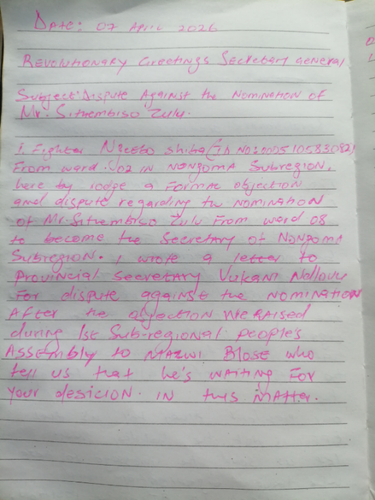 Date: 07 April 2026
Revolutionary Greetings Secretary General
Subject: Dispute Against the Nomination of
Mr. Sithembiso Zulu.
I Fighter Ntsoto Shiba (ID NO: 000510583082)
From ward :02 in Nongoma Subregion,
here by lodge a Formal objection
and dispute regarding the Nomination
of Mr. Sithembiso Zulu From ward 08
to become the Secretary of Nongoma
Subregion. I wrote a letter to
Provincial Secretary Vukani Ndlovu
For dispute against the Nomination
After the objection We Raised
during 1st Sub-regional peoples
Assembly to Blose who
tell us that he's waiting For
your desicion. in this matter.